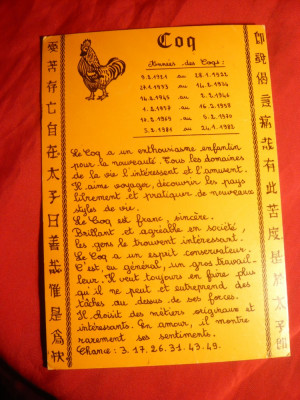 Coq
Années des Coqs:
1921 au 28.1.1922
1933 au 14.2.1934
1945 au 2.2.1946
au 16.2.1958
1969 au 5.2.1970
1981 au 24.1.1982
Le Coq a un enthousiasme enfantin
pour la nouveauté. Tous les domaines
de la vie l'intéressent et l'amusent.
Il aime voyager, découvrir les pays
librement et pratiquer de nouveaux
styles de vie.
Le Coq est franc, sincère.
Brillant et agréable en société
les gens le trouvent intéressant.
Le Coq a un esprit conservateur.
C'est, en général, un gros travail-
leur. Il veut toujours en faire plus
qu'il ne peut et entreprend des
tâches au dessus de ses forces.
Il choisit des métiers originaux et
intéressants. En amour, il montre
rarement ses sentiments.
Chance: 3.17.26.31.43.49.
愛苦存亡自在太子曰善哉惟是為快
俗言病哉有此苦是於太子即